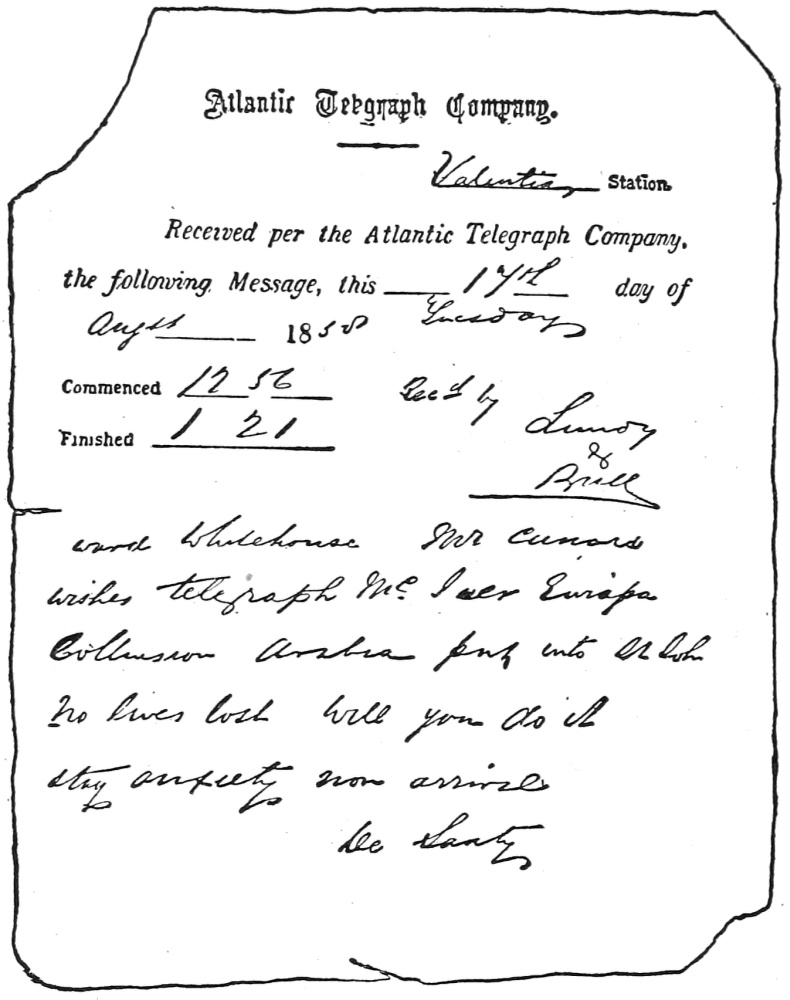 Atlantic Telegraph Company.
Valentia Station
Received per the Atlantic Telegraph Company.
the following Message, this 17th day of
Augst 1858 Tuesday
Commenced 12 56 Recd by
Finished 1 21 Lundy
&
Bull
ward Whitehouse Mr Cunard
wishes telegraph McIver Europa
Collission Arabia put into St John
No lives lost will you do it
stay anxiety non arrival
De Sauty